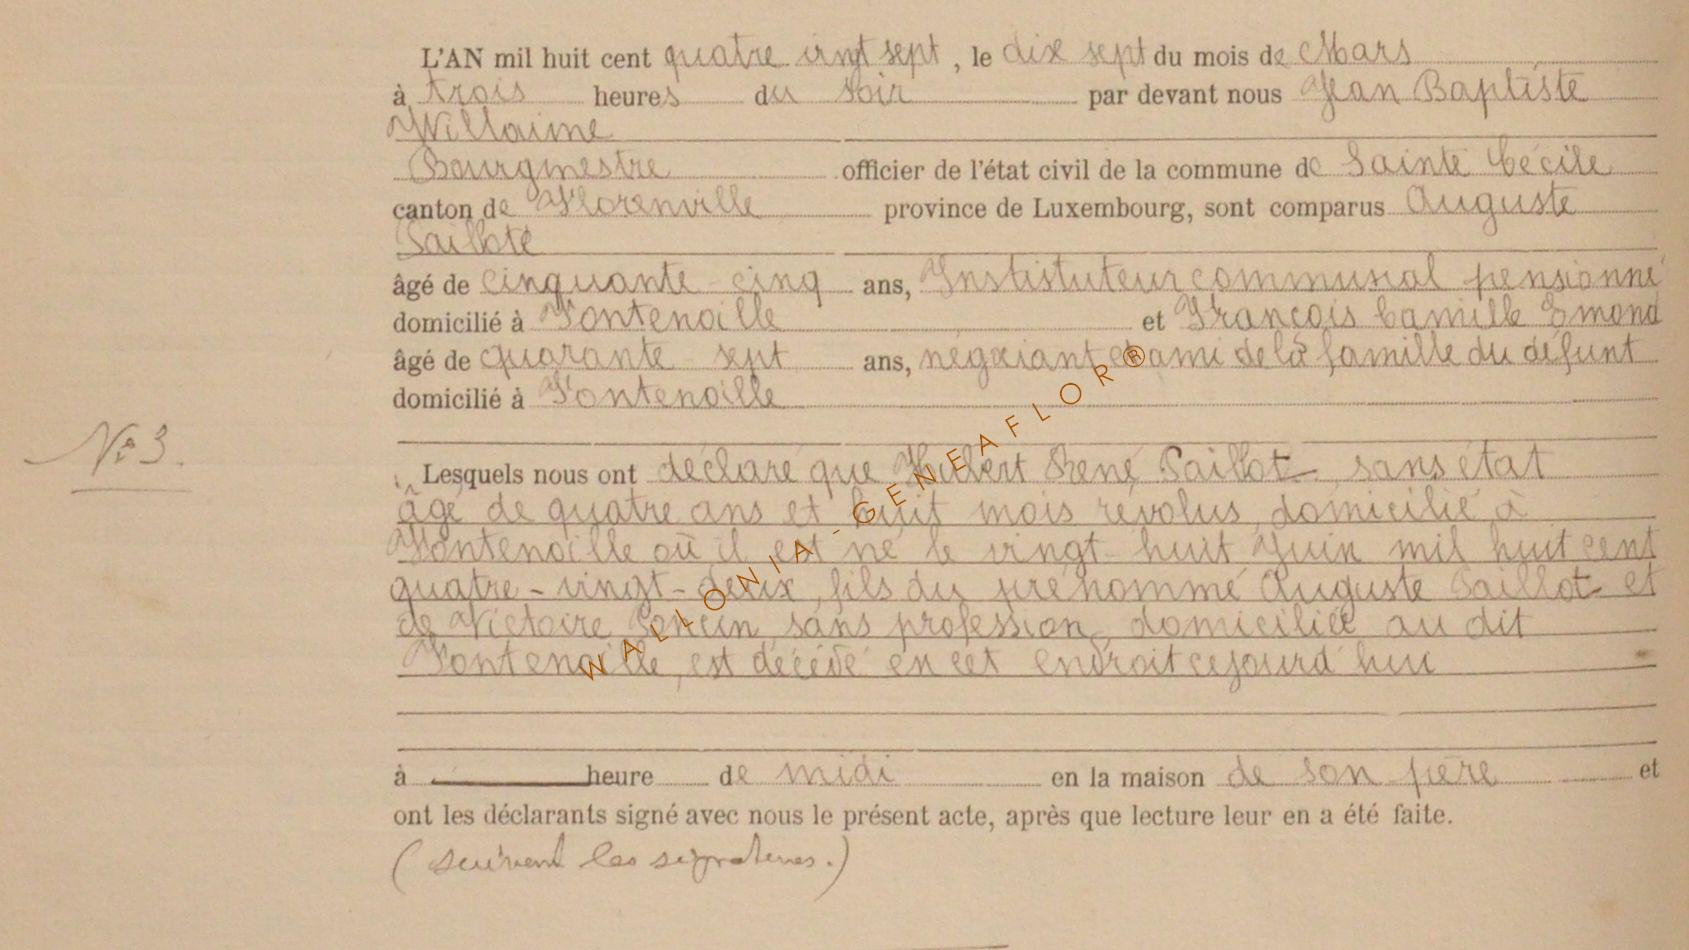 L'AN mil huit cent quatre vingt sept, le dix sept du mois de Mars
à trois heures du soir par devant nous Jean Baptiste
Willaime
Bourgmestre officier de l'état civil de la commune de Sainte Cécile
canton de Florenville province de Luxembourg, sont comparus Auguste
Saillot
âgé de cinquante-cinq ans, Instituteur communal pensionné
domicilié à Fontenoille et François Camille Emond
âgé de quarante-sept ans, négociant et ami de la famille du défunt
domicilié à Fontenoille
No 3.
Lesquels nous ont déclaré que Hubert René Saillot sans état
âgé de quatre ans et huit mois révolus, domicilié à
Fontenoille où il est né le vingt-huit Juin mil huit cent
quatre-vingt-deux, fils du prénommé Auguste Saillot et
de Victoire sans profession, domiciliée au dit
Fontenoille, est décédé en cet endroit cejourd'hui
à heure de midi en la maison de son père et
ont les déclarants signé avec nous le présent acte, après que lecture leur en a été faite.
(suivent les signatures.)
WALLONIA-GENEAFLOR®